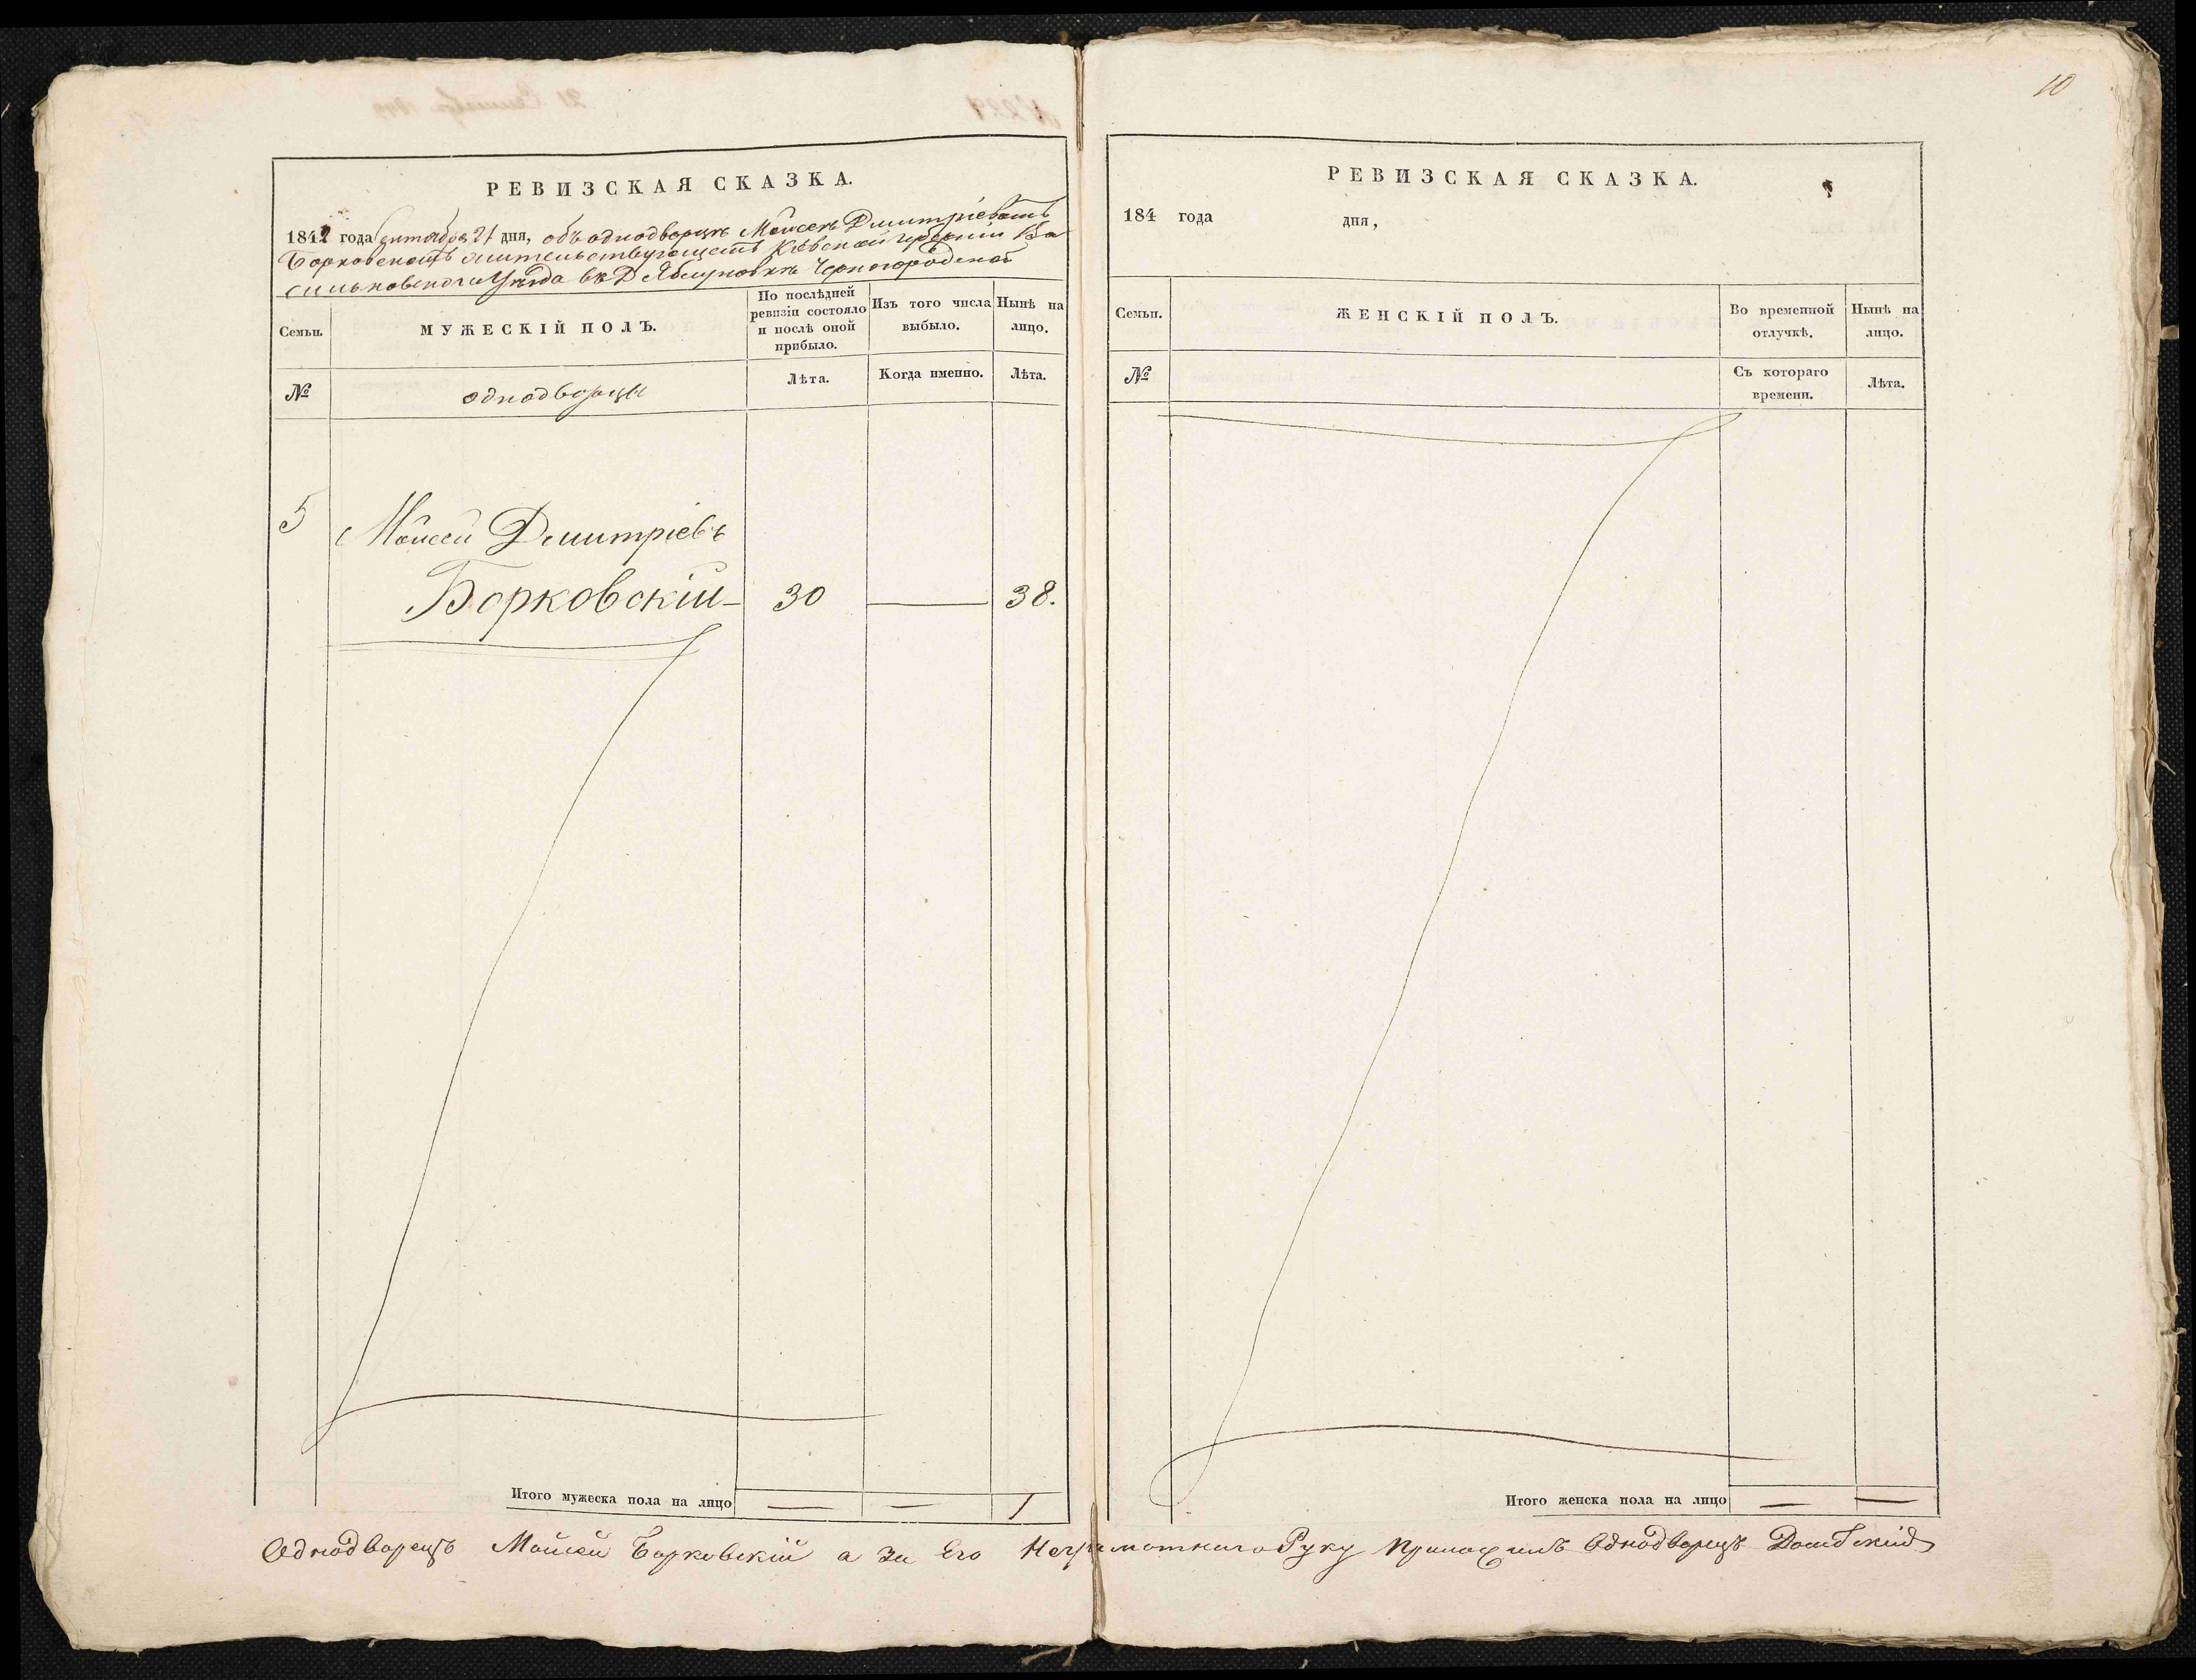 10
РЕВИЗСКАЯ СКАЗКА.
1842 года Сентября 21 дня, объ однодворцѣ Мойсеѣ Дмитріевомъ
Борковскомъ жительствующемъ Кіевской губерніи Ва
сильковского Уѣзда въ Д Яблуновкѣ Черногородской
Семьи.
МУЖЕСКІЙ ПОЛЪ.
По послѣдней ревизіи состояло и послѣ оной прибыло.
Изъ того числа выбыло.
Нынѣ на лицо.
№
однодворцы
Лѣта.
Когда именно.
Лѣта.
5
Мойсей Дмитріевъ
Борковскій 30 — 38.
Итого мужеска пола на лицо — — 1
РЕВИЗСКАЯ СКАЗКА.
184 года дня,
Семьи.
ЖЕНСКІЙ ПОЛЪ.
Во временной отлучкѣ.
Нынѣ на лицо.
№
Съ котораго времени.
Лѣта.
Итого женска пола на лицо — —
Однодворецъ Мойсей Борковскій а За Его Неграмотного Руку Приложилъ Однодворецъ